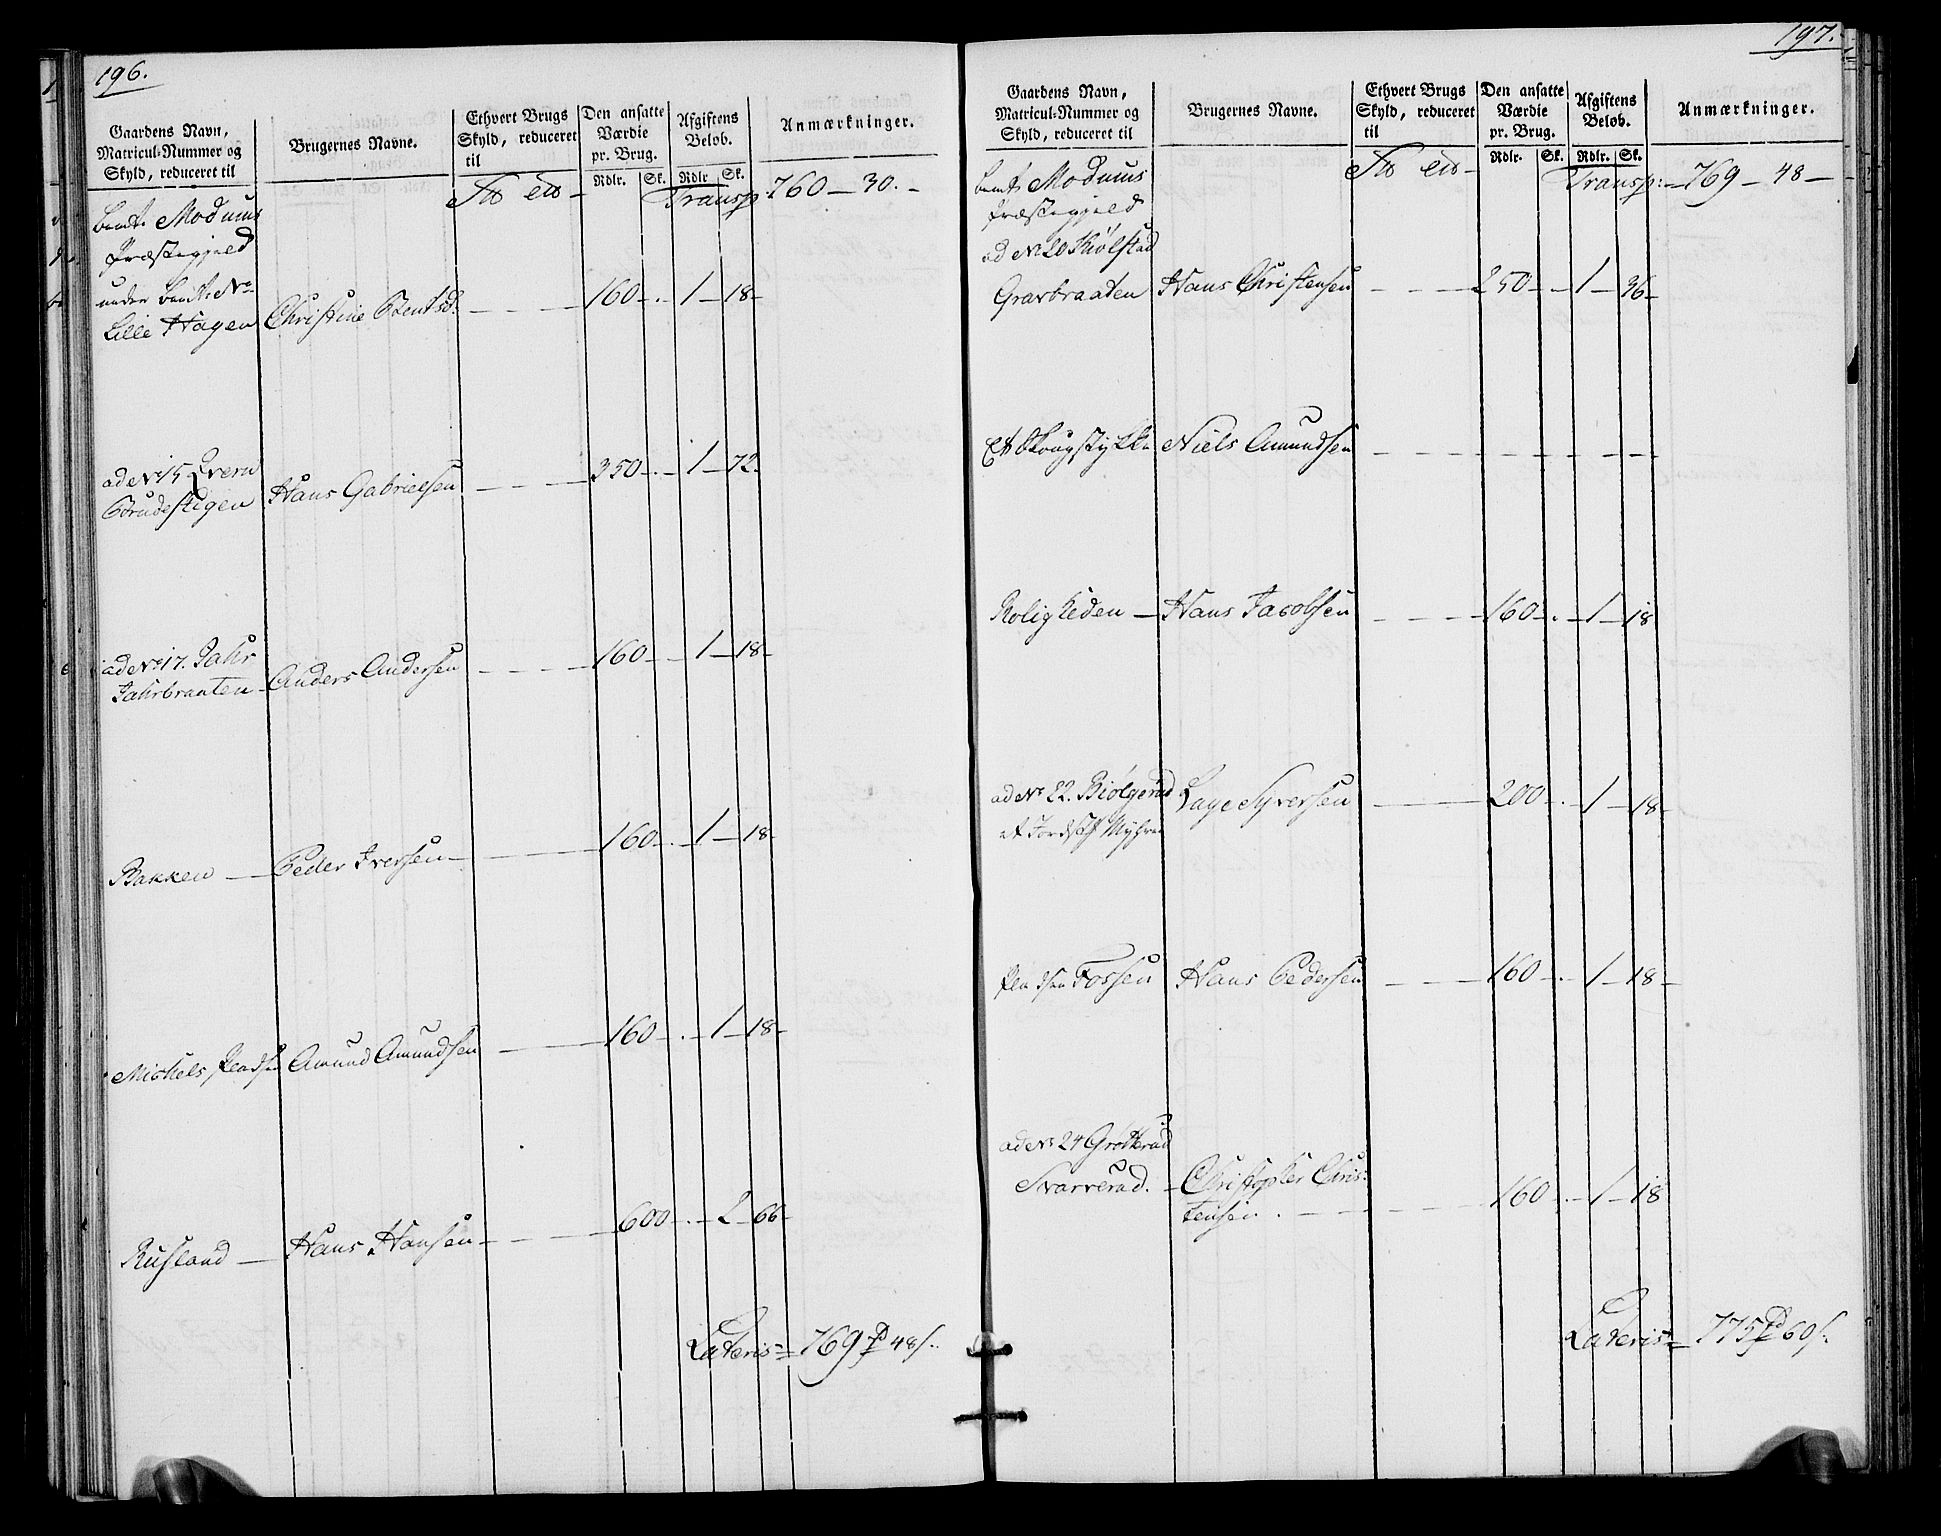 196.
Gaardens Navn, Matricul-Nummer og Skyld, reduceret til
Brugernes Navne.
Ethvert Brugs Skyld, reduceret til
Den ansatte Værdie pr. Brug.
Afgiftens Beløb.
Anmærkninger.
Rdlr. Sk. Rdlr Sk.
Transp. 760 - 30. -
bemte Modums
Præstegjeld
under bemte No
Lille Hagen Christine Bentsd. 160 - . - 1 - 18 -
ad No 15 Qvern
Brudestigen Hans Gabrielsen 350 - . - 1 - 72.
ad No 17. Jahr
Jahrbraaten - Anders Andersen 160 - . - 1 - 18 -
Bakken - Peder Iversen - 160 - . - 1 - 18 -
Michels Pladsen Amund Amundsen 160 - . - 1 - 18 -
Rusland - Hans Hansen - 600 - . - 2 - 66 -
Lateris = 769 48 s.
197.
Gaardens Navn, Matricul-Nummer og Skyld, reduceret til
Brugernes Navne.
Ethvert Brugs Skyld, reduceret til
Den ansatte Værdie pr. Brug.
Afgiftens Beløb.
Anmærkninger.
Rdlr. Sk. Rdlr. Sk.
Transp: - 769 - 48 -
bemte Modums
Præstegjeld
ad No 20 Kiølstad
Gravbraaten Hans Christensen 250 - . - 1 - 36 -
Et Skougstykke Niels Amundsen
Roligheden - Hans Jacobsen 160 - . - 1 - 18
ad No 22. Biølgerud Lage Syversen 200 - . - 1 - 18 -
et Jordst Myhren
Pladsen Fossen Hans Pedersen 160 - . - 1 - 18 -
ad No 24 Grøtterud
Svarverud. - Christopher Chris:
tensen. 160 - . - 1 - 18
Lateris = 775 60 s.